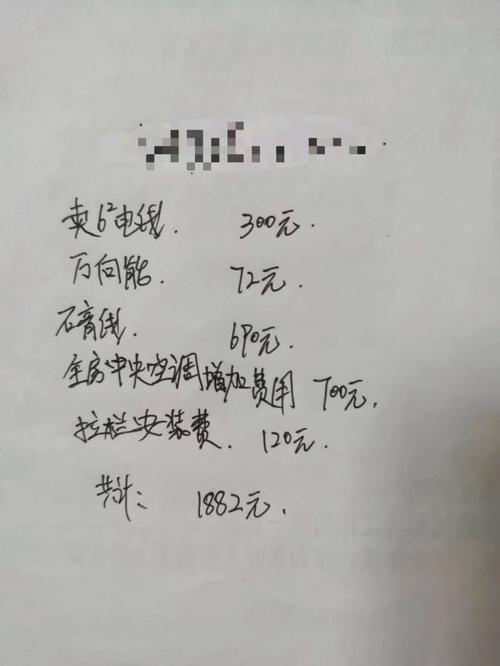 卖6²电线. 300元.
万向能. 72元.
石膏线. 690元.
全房中央空调增加费用 700元.
拉栏安装费. 120元.
共计: 1882元.